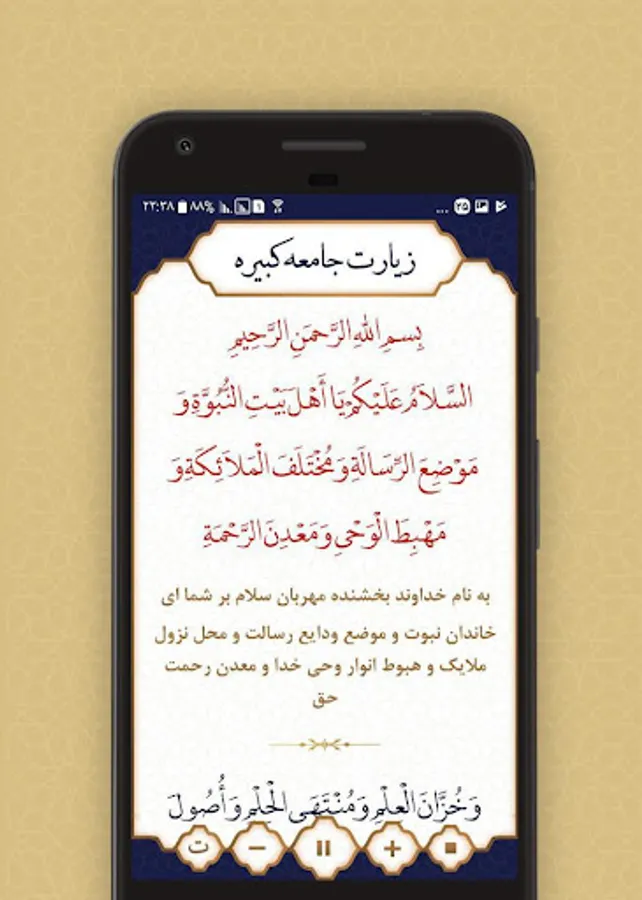 ۲۳:۳۸ ۸۸%
... ۲۵
زیارت جامعه کبیره
بِسمِ اللهِ الرَّحمَنِ الرَّحِیمِ
السَّلاَمُ عَلَیْکُمْ یَا أَهْلَ بَیْتِ النُّبُوَّةِ وَ
مَوْضِعَ الرِّسَالَةِ وَ مُخْتَلَفَ الْمَلاَئِکَةِ وَ
مَهْبِطَ الْوَحْیِ وَ مَعْدِنَ الرَّحْمَةِ
به نام خداوند بخشنده مهربان سلام بر شما ای
خاندان نبوت و موضع ودایع رسالت و محل نزول
ملایک و هبوط انوار وحی خدا و معدن رحمت
حق
وَ خُزَّانَ الْعِلْمِ وَ مُنْتَهَی الْحِلْمِ وَ أُصُولَ
ت